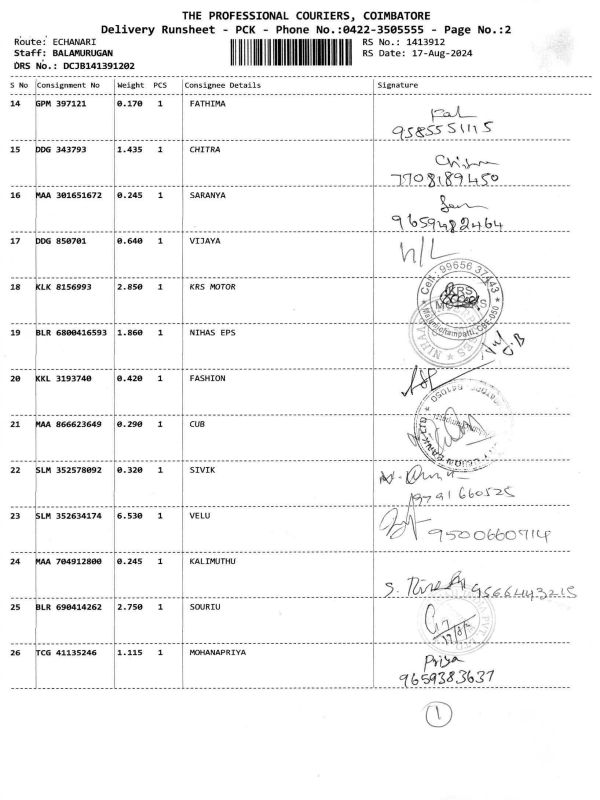 THE PROFESSIONAL COURIERS, COIMBATORE
Delivery Runsheet - PCK - Phone No.:0422-3505555 - Page No.:2
Route: ECHANARI RS No.: 1413912
Staff: BALAMURUGAN RS Date: 17-Aug-2024
DRS No.: DCJB141391202
S No Consignment No Weight PCS Consignee Details Signature
14 GPM 397121 0.170 1 FATHIMA
9585551115
15 DDG 343793 1.435 1 CHITRA
7708189450
16 MAA 301651672 0.245 1 SARANYA
9659482464
17 DDG 850701 0.640 1 VIJAYA
N/L
18 KLK 8156993 2.850 1 KRS MOTOR
Cell : 99656 37443
KRS
MOTORS
Malumichampatti, CBE-050
19 BLR 6800416593 1.860 1 NIHAS EPS
20 KKL 3193740 0.420 1 FASHION
21 MAA 866623649 0.290 1 CUB
641050
22 SLM 352578092 0.320 1 SIVIK
9791660525
23 SLM 352634174 6.530 1 VELU
9500660714
24 MAA 704912800 0.245 1 KALIMUTHU
9566443215
25 BLR 690414262 2.750 1 SOURIU
17/8/
26 TCG 41135246 1.115 1 MOHANAPRIYA
Priya
9659383637
1